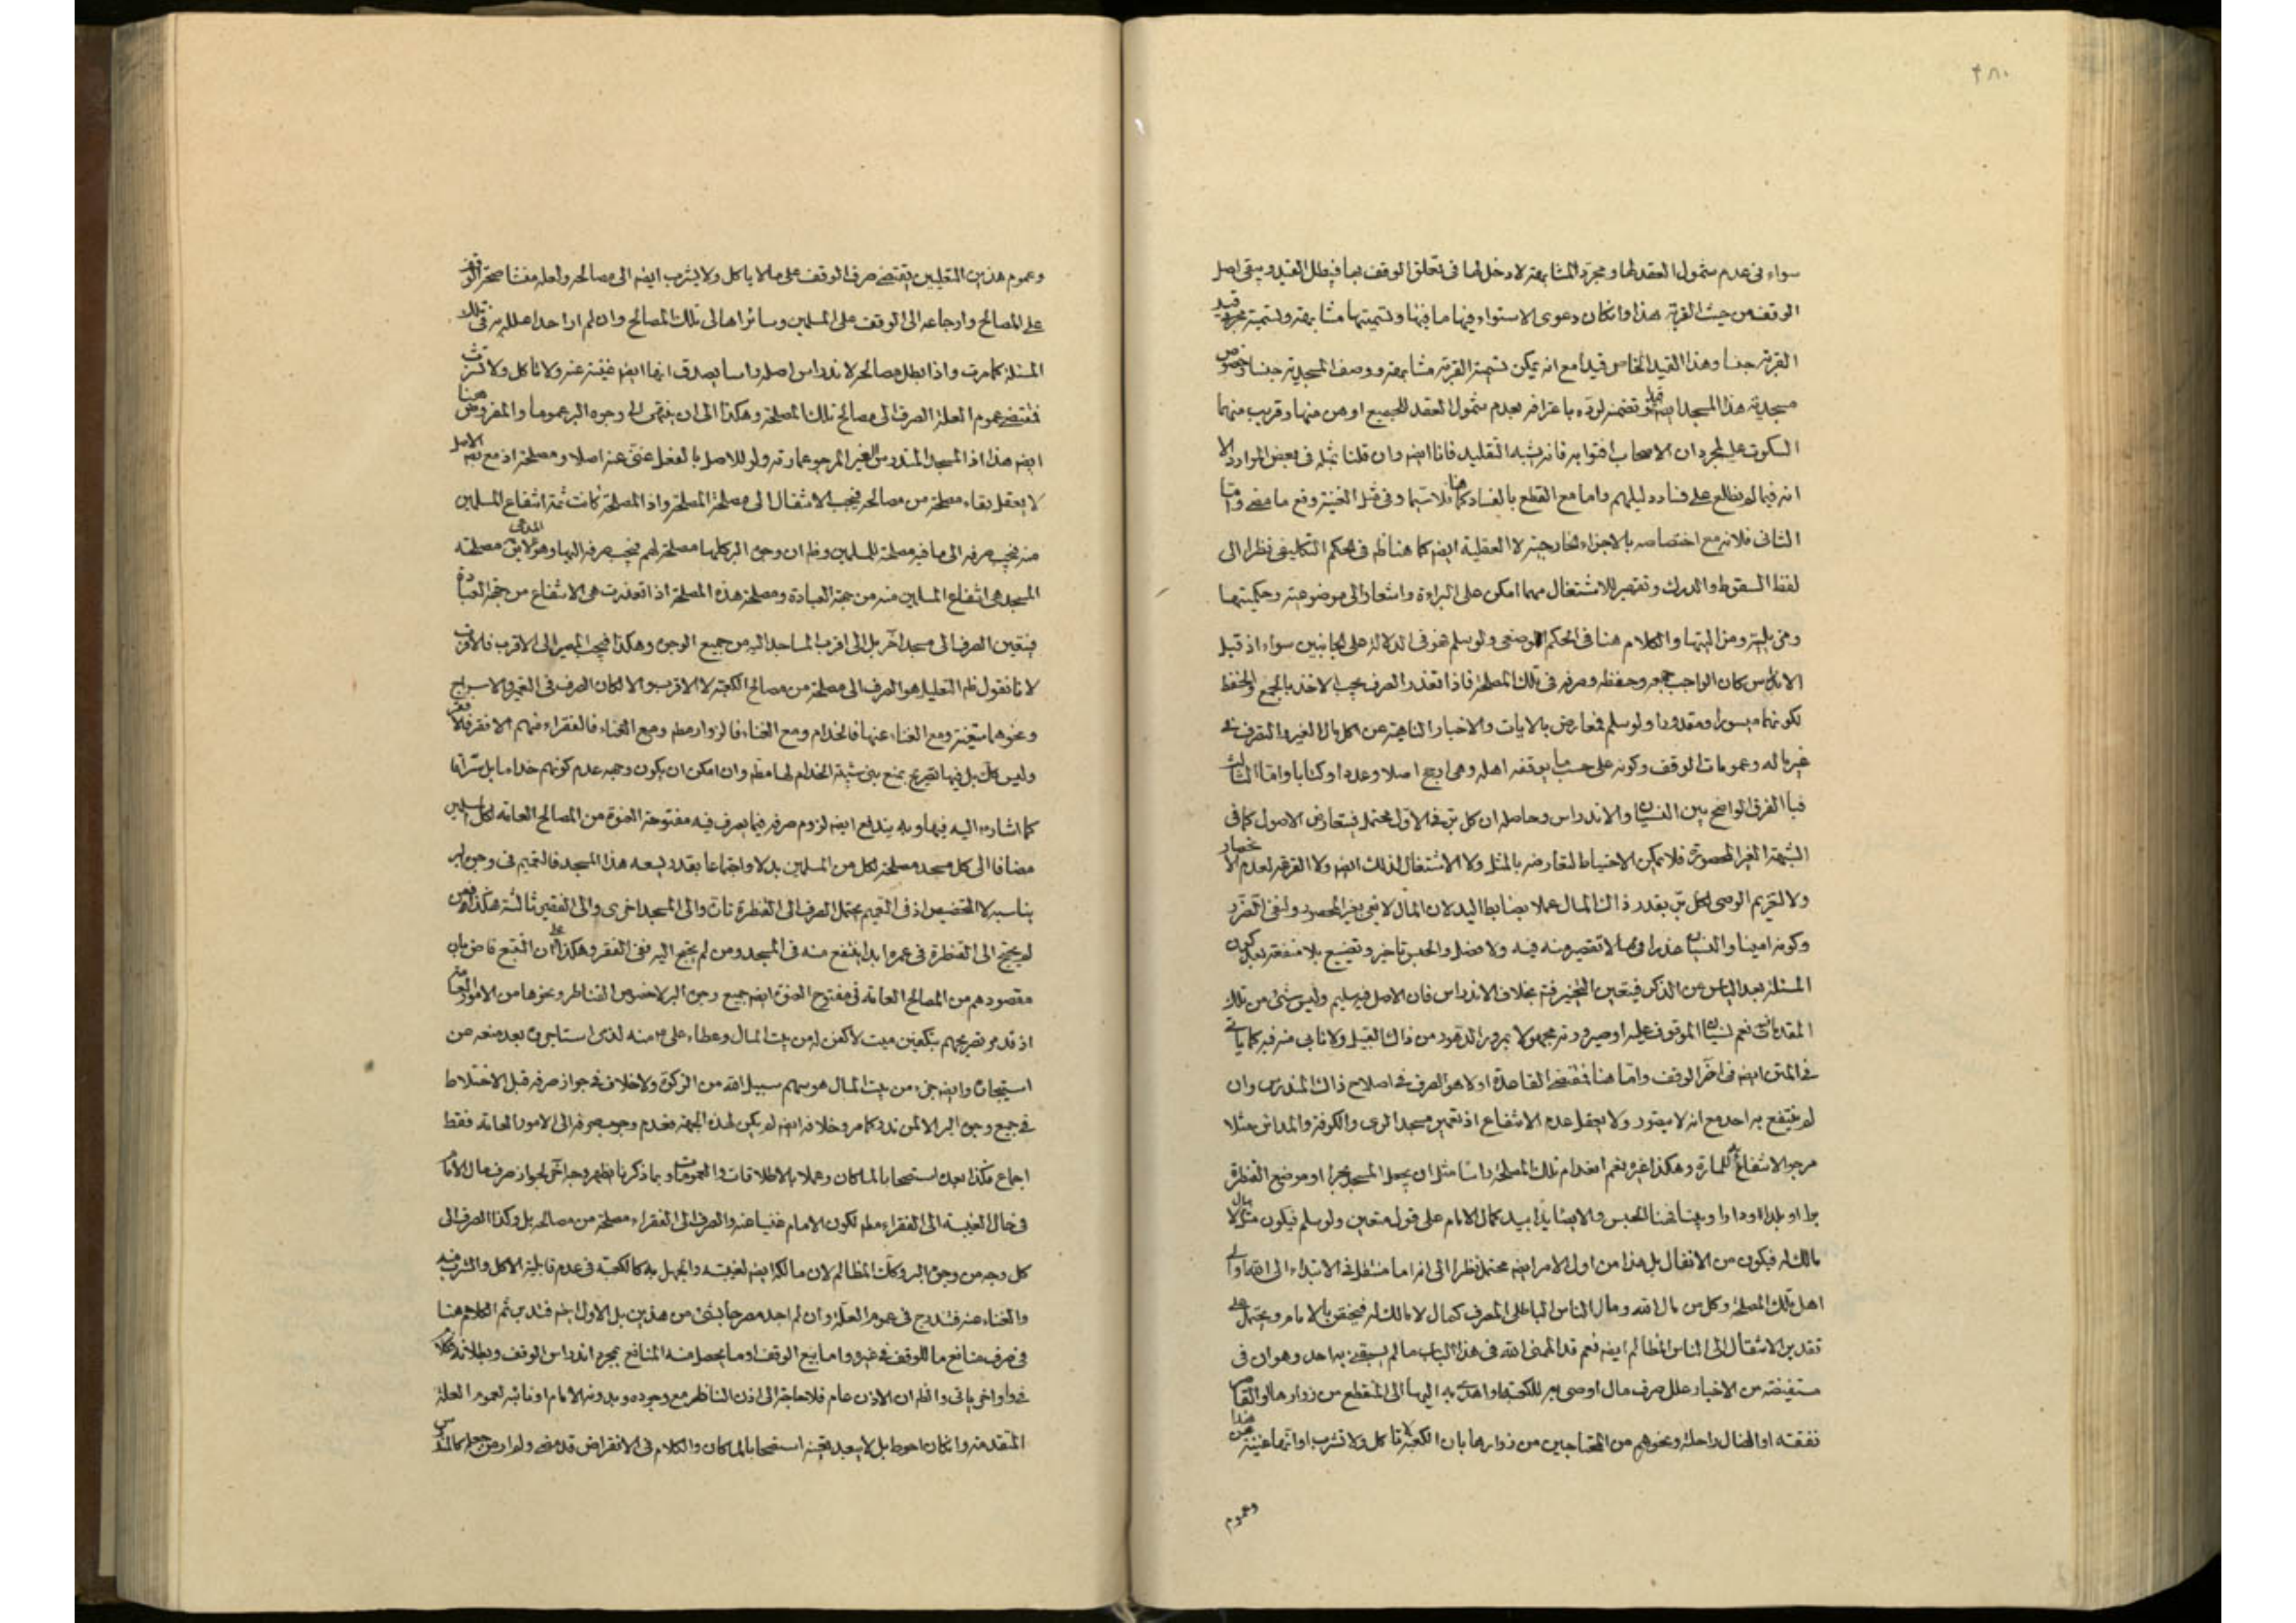 ٢٨٠
سواء فى عدم شمول العقد لها ومجرد المشابهة لا دخل لها فى تعلق الوقف بها فيبطل القيد ويبقى اصل
الوقف من حيث القربة هذا وان كان دعوى الاستواء فيها ما فيها وتسميتها مشابهة وتسمية مجرد قيد
القربة جنسا وهذا القيد الخاص قيدا مع انه يمكن تسمية القربة مشابهة ووصف المسجدية جنسا وخصوص
مسجدية هذا المسجد ايضه باعترافه بعدم شمول العقد للجميع او من منها وقريب منهما
السكوت على مجرد ان الاصحاب افتوا به فانه يشبه التقليد فانا ايضه وان قلنا بمثله فى بعض الموارد الا
انه فيما لم نطلع على فساد دليلهم واما مع القطع بالفساد كما هنا فلا سيما وفى مثل الغيبة وقع ما مضى واما
الثانى فلانه مع اختصاصه بالاجزاء الخارجية لا العقلية ايضه كما هنا ظه فى الحكم التكليفى نظرا الى
لفظ السقوط والدرك وتقصير للاشتغال مهما امكن على البراءة واشعار الى موضوعيته وحكميتها
والكلام هنا فى الحكم الوضعى ولو سلم هو فى الدلالة على الجانبين سواء اذ قبل
الاندراس كان الواجب جمعه وحفظه وصرفه فى تلك المصلحة فاذا تعذر الصرف يجب الاخذ بالجمع والحفظ
لكونهما ميسورا ومقدورا ولو سلم فمعارض بالايات والاخبار الناهية عن اكل مال الغير والتصرف فى
غير ماله وعمومات الوقف وكونه على حسب ما يوقفه اهله وهى ارجح اصلا وعددا وكتابا واما الثالث
فبالفرق الواضح بين النسيان والاندراس وحاصله ان كل بر فى الاول محتمل فيتعارض الاصول كما فى
الشبهة الغير المحصورة فلا يمكن الاحتياط لتعارضه بالمثل ولا الاشتغال لذلك ايضه ولا القرعة لعدم الانحصار
ولا لتغريم الوصى لكل بر بقدر ذاك المال عملا بضابط اليد لان المال لا يفى بغير المحصور ولنفى الضرر
وكونه امينا والنسيان عذرا لا تقصير منه فيه ولا فضل والحبس تاخير وتضييع بلا منفعة بعد كون
المسئلة بعد الياس من الذكر فيتعين التخيير فتم بخلاف الاندراس فان الاصل فيه سليم وليس شئ من تلك
المقدمات نعم نسيان الموقوف عليه او صيرورته مجهولا بمرور الدهور من ذاك القبيل ولا نابى منه فيه كما ياتى
فى المتن ايضه فى آخر الوقف واما هنا فمقتضى القاعدة اولا هو الصرف فى اصلاح ذاك المندرس وان
لم ينتفع به احد مع انه لا يتصور ولا يعقل عدم الانتفاع اذ تعمير مسجد الرى والكوفة والمدائن مثلا
مرجو الانتفاع للمارة وهكذا غيره نعم انعدام تلك المصلحة راسا مثل ان يجعل المسجد بحرا او موضع القنطرة
برا او بلدا او دارا الحبس والابقاء كمال الامام على قول متعين ولو سلم فيكون مثل مال لا
مالك له فيكون من الانفال بل هذا من اول الامر ايضه محتمل نظرا الى انه اما منتقل فى الابتداء الى الله او الى
اهل تلك المصلحة وكل من مال الله ومال الناس الباطل المصرف كمال لا مالك له فيختص بالامام ويحتمل على
تقدير الانتقال الى الناس المظالم ايضه نعم قد الهمنى الله فى هذا الباب ما لم يسبقنى به احد وهو ان فى
مستفيضة من الاخبار علل صرف مال اوصى به للكعبة او اهدى به اليها الى المنقطع من زوارها والقاصر
نفقته او الضال راحلته ونحوهم من المحتاجين من زوارها بان الكعبة لا تاكل ولا تشرب او انها غنية عن هذا
وعموم
وعموم هذين التعليلين يقتضى صرف الوقف على ما لا ياكل ولا يشرب ايضه الى مصالحه ولعله منشا صحة الوقف
على المصالح وارجاعه الى الوقف على المسلمين وسائر اهالى تلك المصالح وان لم ار احدا علله به فى تلك
المسئلة كما مرت واذا بطل مصالحه لاندراس اصله راسا يصدق انها ايضه غنية عنه ولا تاكل ولا تشرب
فمقتضى عموم العلة الصرف الى مصالح تلك المصلحة وهكذا الى ان ينتهى الى وجوه البر عموما والمفروض هنا
ايضه هذا اذ المسجد المندرس الغير المرجو عمارته ولو للاصل بالفعل غنى عنه اصلا ومصلحة اذ مع الاصل
لا يعقل بقاء مصلحة من مصالحه فيجب الانتقال الى مصلحة المصلحة واذ المصلحة كانت ثمة انتفاع المسلمين
منه فيجب صرفه الى ما فيه مصلحة للمسلمين وظه ان وجوه البر كلها مصلحة لهم فيجب صرفه اليها وهو المدعى لا يق مصلحة
المسجد هى انتفاع المسلمين منه من جهة العبادة ومصلحة هذه المصلحة اذا تعذرت هى الانتفاع من جهة العبادة
فيتعين الصرف الى مسجد آخر بل الى اقرب المساجد اليه من جميع الوجوه وهكذا فيجب المصير الى الاقرب فالاقرب
لانا نقول ظه التعليل هو الصرف الى مصلحة من مصالح الكعبة لا الاقرب والا لكان الصرف فى التعمير والاسراج
ونحوهما متعينة ومع الغناء عنها فالخدام ومع الغناء فالزوار مطه ومع الغناء فالفقراء منهم الافقر فالافقر
وليس كك بل فيها تصريح بمنع بنى شيبة الخدام لها مطه وان امكن ان يكون وجهه عدم كونهم خداما بل سراقا
كما اشار ع اليه فيها وبه يندفع ايضه لزوم صرفه فيما يصرف فيه مفتوحة العنوة من المصالح العامة لكل المسلمين
مضافا الى كل مسجد مصلحة لكل من المسلمين بدلا واجتماعا بقدر يسعه هذا المسجد فالتعميم فى وجوه البر
يناسبه لا التخصيص اذ فى التعميم يحتمل الصرف الى القنطرة تارة والى المسجد اخرى والى الفقير ثالثة هكذا فمن
لم يحتج الى القنطرة فى عمره ابدا ينتفع منه فى المسجد ومن لم يحتج اليه ففى الفقر وهكذا على ان التتبع قاض بان
مقصودهم من المصالح العامة فى مفتوح العنوة ايضه جميع وجوه البر لا خصوص القناطر ونحوها من الامور العامة
اذ قد مر تصريحهم بتكفين ميت لا كفن له من بيت المال وعطاء على ع منه لذى استاجره بعد منعه عن
استيجاره وايضه جزء من بيت المال هو سهم سبيل الله من الزكوة ولا خلاف فى جواز صرفه قبل الاختلاط
فى جميع وجوه البر الا لمن ندر كما مر وخلافه ايضه لم يكن لهذه الجهة فعدم وجوب صرفه الى الامور العامة فقط
اجماع فكذا بعده استصحابا لما كان وعملا بالاطلاقات والعمومات وبما ذكرنا يظهر وجه آخر لجواز صرف مال الامام
فى حال الغيبة الى الفقراء مطه لكون الامام غنيا عنه والصرف الى الفقراء مصلحة من مصالحه بل وكذا الصرف الى
كل وجه من وجوه البر وكك المظالم لان مالكه ايضه لغيبته والجهل به كالكعبة فى عدم قابلية الاكل والشرب منه
والغناء عنه فتندرج فى عموم العلة وان لم اجد مصرحا بشئ من هذين بل الاول ايضه فتدبر ثم الكلام هنا
فى صرف منافع ما للوقف فى غيره واما بيع الوقف او ما يحصل منه المنافع بمجرد اندراس الوقف وبطلانه فكلام
آخر ياتى والظه ان الاذن عام فلا حاجة الى اذن الناظر مع وجوده وبدونه الامام او نائبه لعموم العلة
المتقدمة وان كان احوط بل لا يبعد تعينه استصحابا لما كان والكلام فى الانقراض قد مضى ولم ار من جعله كالمندرس